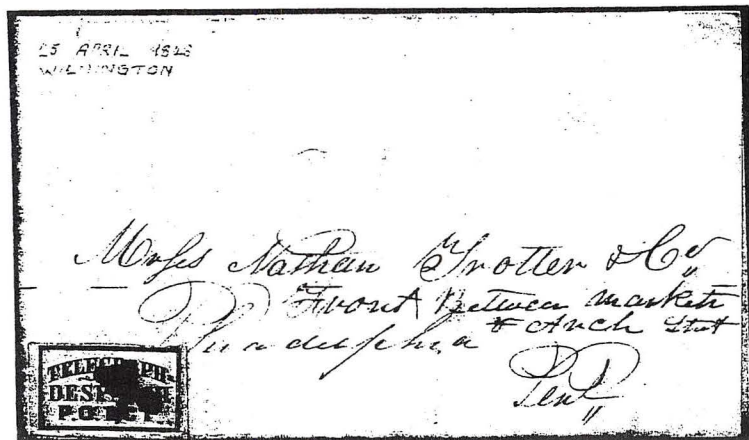 25 APRIL 1848
WILMINGTON
Messs Nathan Trotter & Co
Front Between Market
& Arch Stret
Philadelphia
Penl
TELEGRAPH
P.O.